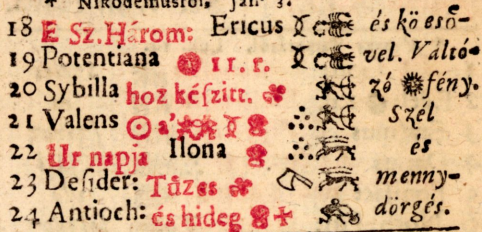 † Nikodemusról, Ján. 3.
18 E Sz. Három: Ericus és kö eső-
19 Potentiana 11. r. vel. Váltó-
20 Sybilla hoz kéſzitt. zó fény.
21 Valens a' Szél
22 Ur napja Ilona és
23 Deſider: Tüzes menny-
24 Antioch: és hideg dörgés.